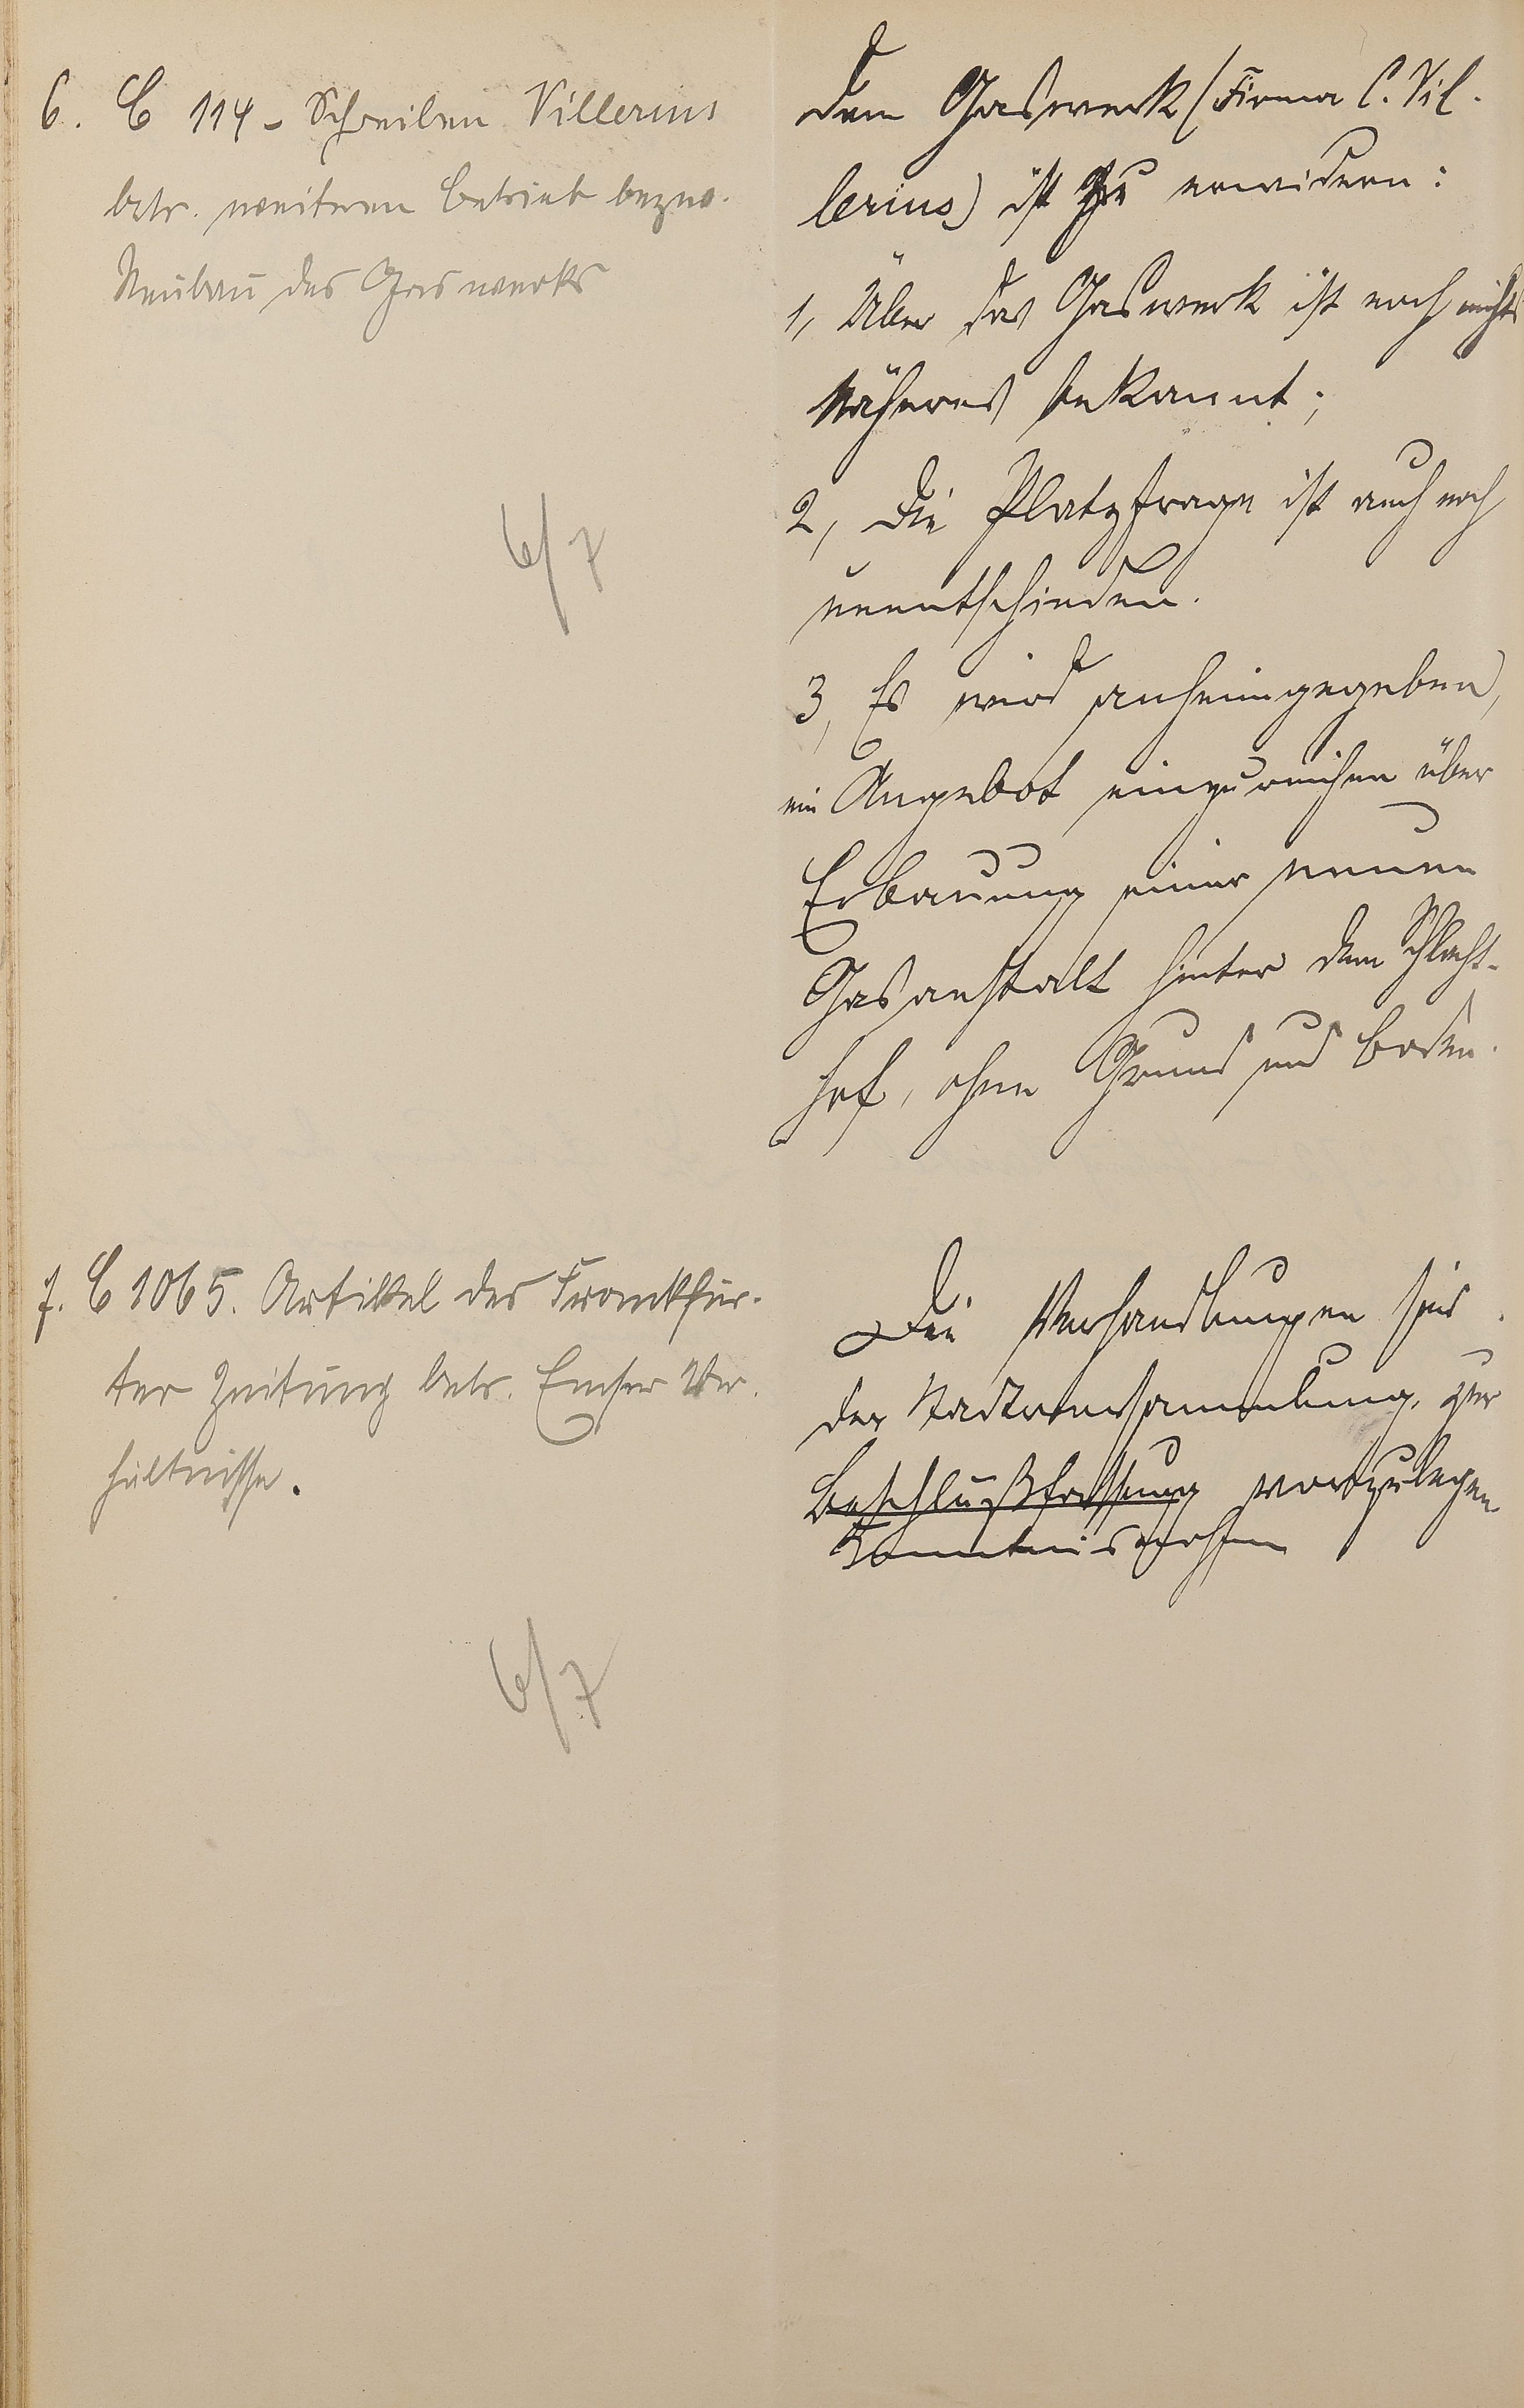 6. C 114 - Schreiben Villerius
betr. weiteren Betrieb bezw.
Neubau des Gaswerks
6/7
Dem Gaswerk (Firma C. Vil-
lerius) ist zu erwidern:
1, Über das Gaswerk ist noch nichts
Näheres bekannt;
2, Die Platzfrage ist auch noch
unentschieden.
3, Es wird anheimgegeben,
ein Angebot einzureichen über
Erbauung einer neuen
Gasanstalt hinter dem Schlacht-
hof, ohne Grund und Boden.
7. C 1065. Artikel der Frankfur-
ter Zeitung betr. Emser Ver-
hältnisse.
6/7
Die Verhandlungen sind
der Stadtverordnetenversammlung zur
Beschlußfassung vorzulegen.
Kenntnisnahme